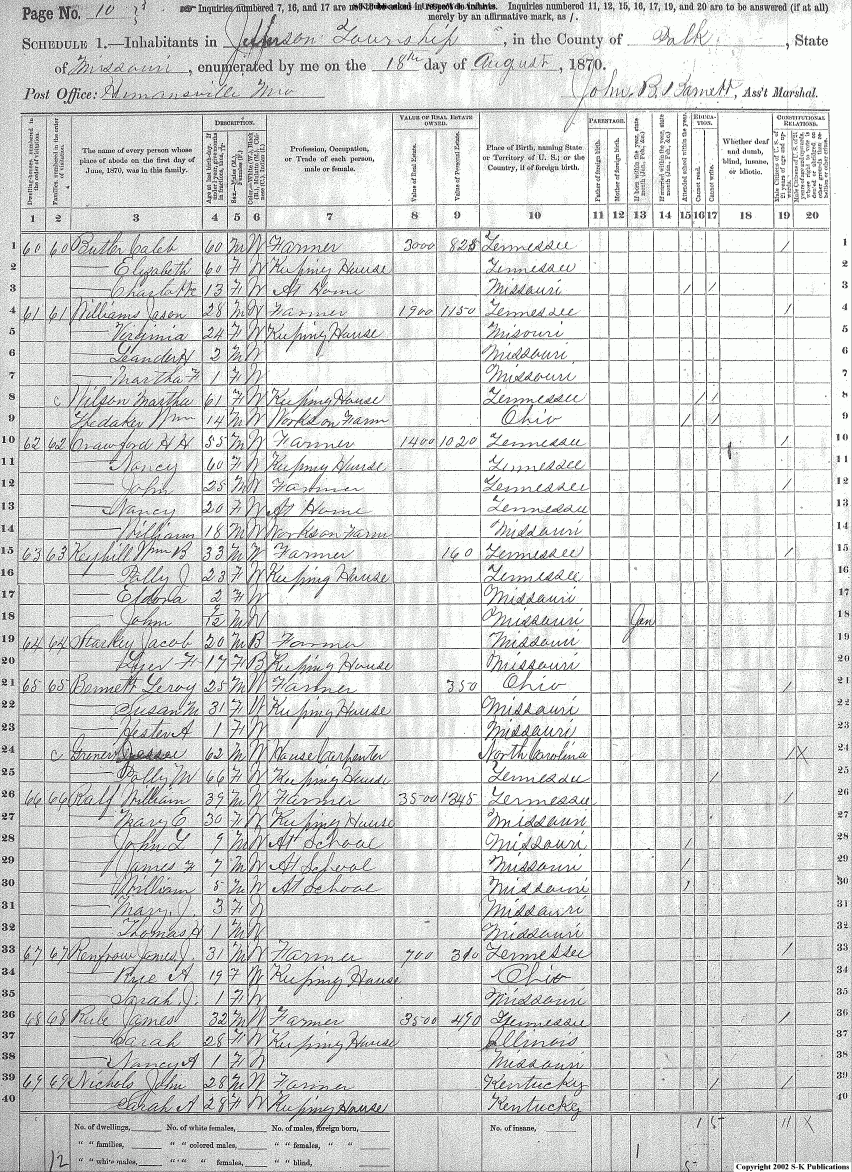 Page No. 10
Inquiries numbered 7, 16, and 17 are not to be asked in respect to infants. Inquiries numbered 11, 12, 15, 16, 17, 19, and 20 are to be answered (if at all)
merely by an affirmative mark, as /.
SCHEDULE 1.—Inhabitants in Johnson Township, in the County of Polk, State
of Missouri, enumerated by me on the 18th day of August, 1870.
Post Office: Humansville Mo John B. Ass't Marshal.
DESCRIPTION. VALUE OF REAL ESTATE OWNED. PARENTAGE. EDUCATION. CONSTITUTIONAL RELATIONS.
Dwelling-houses, numbered in the order of visitation.
Families, numbered in the order of visitation.
The name of every person whose place of abode on the first day of June, 1870, was in this family.
Profession, Occupation, or Trade of each person, male or female.
Value of Real Estate.
Value of Personal Estate.
Place of Birth, naming State or Territory of U. S.; or the Country, if of foreign birth.
Father of foreign birth.
Mother of foreign birth.
Attended school within the year.
Cannot read.
Cannot write.
Whether deaf and dumb, blind, insane, or idiotic.
1 2 3 4 5 6 7 8 9 10 11 12 13 14 15 16 17 18 19 20
1 60 60 Butler Caleb 60 M W Farmer 3000 825 Tennessee / 1
2 — Elizabeth 60 F W Keeping House Tennessee 2
3 — Charlotte 13 F W At Home Missouri / / 3
4 61 61 Williams Jason 28 M W Farmer 1900 1150 Tennessee / 4
5 — Virginia 24 F W Keeping House Missouri 5
6 — Leander H 2 M W Missouri 6
7 — Martha F 1 F W Missouri 7
8 c Wilson Martha 61 F W Keeping House Tennessee / / 8
9 Wm 14 M W Works on Farm Ohio / / 9
10 62 62 Crawford H H 55 M W Farmer 1400 1020 Tennessee / 10
11 — Nancy 60 F W Keeping House Tennessee 11
12 — John 25 M W Farmer Tennessee / 12
13 — Nancy 20 F W At Home Tennessee 13
14 — William 18 M W Works on Farm Missouri 14
15 63 63 Wm B 33 M W Farmer 160 Tennessee / 15
16 — Polly J 23 F W Keeping House Tennessee 16
17 — Eldora 2 F W Missouri 17
18 — John /12 M W Missouri Jan 18
19 64 64 Starkey Jacob 20 M B Farmer Missouri 19
20 — F 17 F B Keeping House Missouri 20
21 65 65 Bennett Leroy 25 M W Farmer 350 Ohio / 21
22 — Susan M 31 F W Keeping House Missouri 22
23 — Hester A 1 F W Missouri 23
24 c 62 M W House Carpenter North Carolina / X 24
25 — Polly M 66 F W Keeping House Tennessee / 25
26 66 66 Ralf William 39 M W Farmer 3500 1345 Tennessee / 26
27 — Mary E 30 F W Keeping House Missouri 27
28 — John L 9 M W At School Missouri / 28
29 — James F 7 M W At School Missouri / 29
30 — William 5 M W At School Missouri / 30
31 — Mary J. 3 F W Missouri 31
32 — Thomas H 1 M W Missouri 32
33 67 67 Renfrow Jones J. 31 M W Farmer 700 310 Tennessee / 33
34 — A 19 F W Keeping House Ohio 34
35 — Sarah J. 1 F W Missouri 35
36 68 68 James 32 M W Farmer 3500 490 Tennessee / 36
37 — Sarah 28 F W Keeping House Illinois 37
38 — Nancy A 1 F W Missouri 38
39 69 69 Nichols John 28 M W Farmer Kentucky / / 39
40 — Sarah A 28 F W Keeping House Kentucky 40
No. of dwellings, No. of white females, No. of males, foreign born, No. of insane, 1 5 11 X
" " families, " " colored males, " " females, " " 1
12 " " white males, " " " females, " " blind, 5
Copyright 2002 S-K Publications